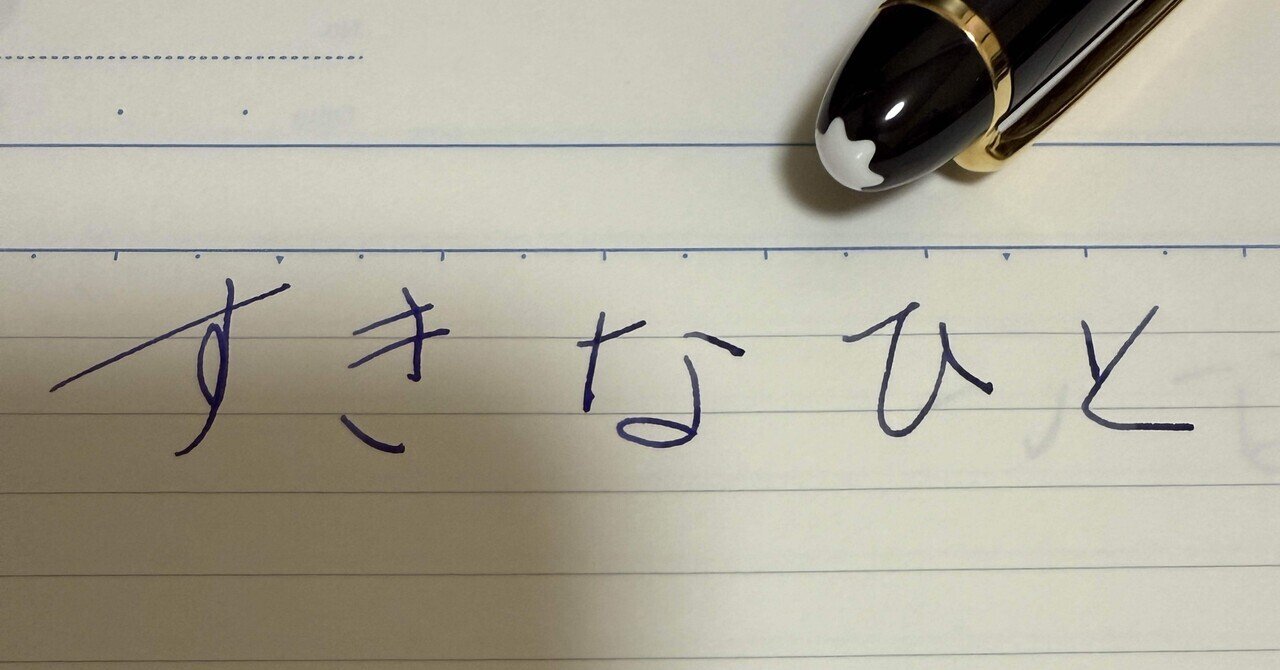 すきなひと